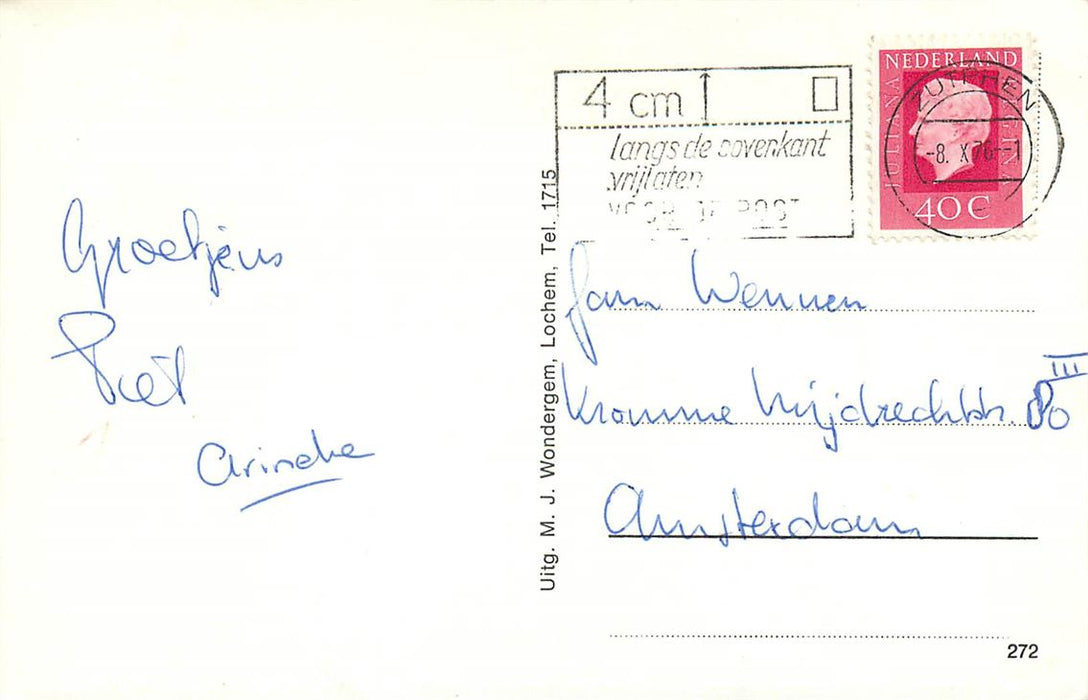 Groetjens
Piet
Arineke
Uitg. M. J. Wondergem, Lochem, Tel. 1715
4 cm
langs de bovenkant
vrijlaten
VOOR DE POST
NEDERLAND
JULIANA REGINA
40 C
ZUTPHEN
-8. X 76--1
Jam Wennen
Kromme Mijdrechtstr. 80 III
Amsterdam
272